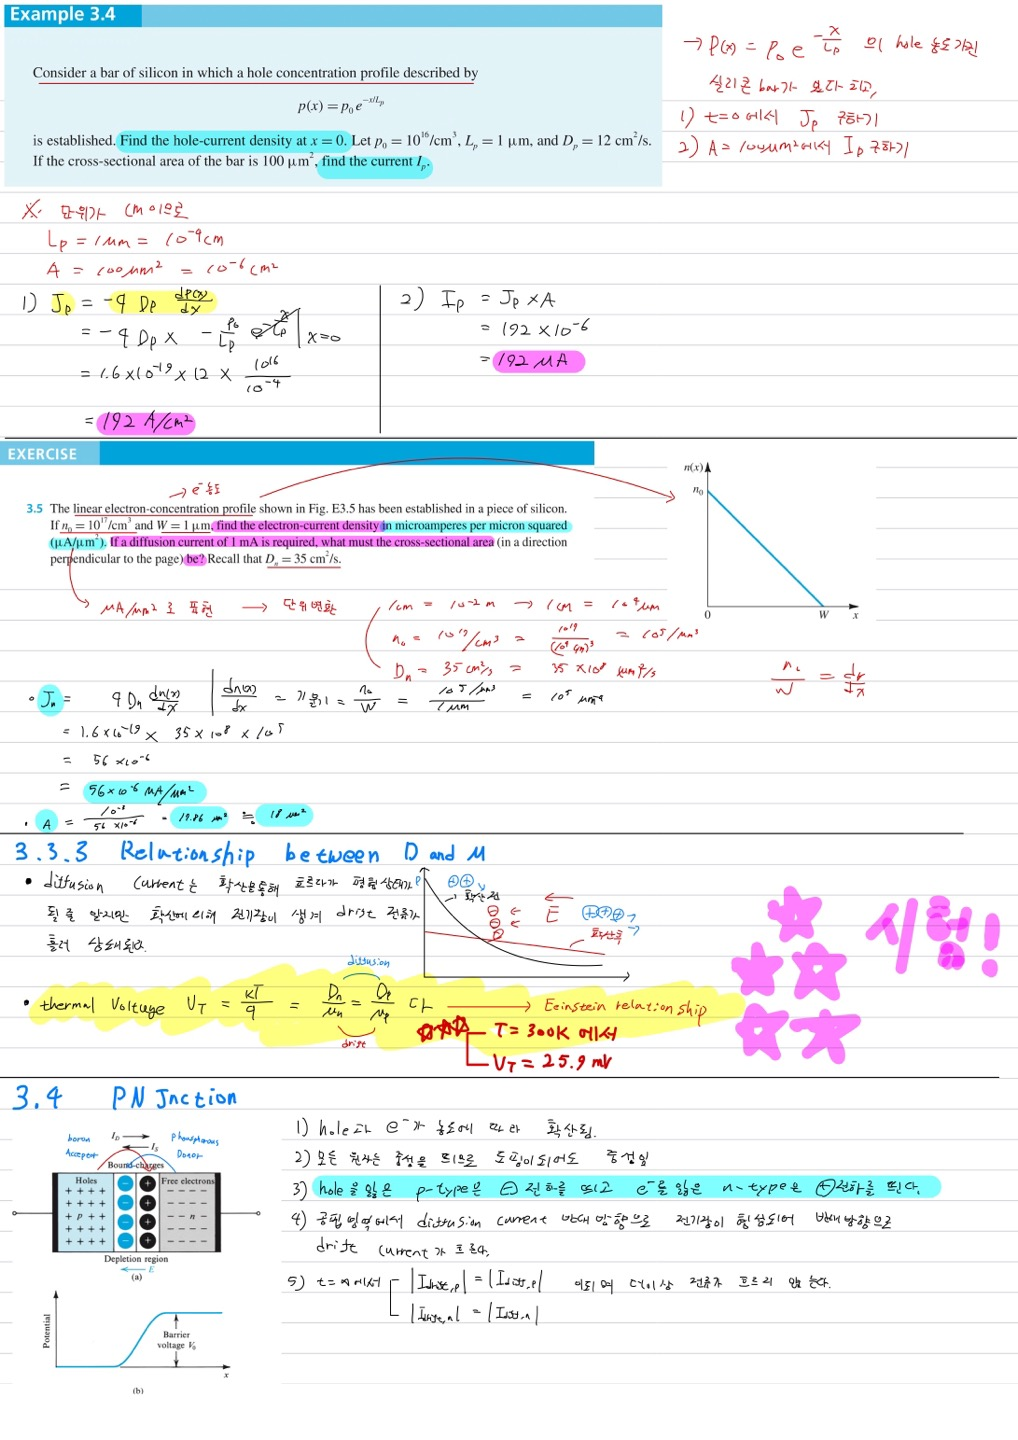 Example 3.4
Consider a bar of silicon in which a hole concentration profile described by
p(x) = p₀e^(−x/Lₚ)
is established. Find the hole-current density at x = 0. Let p₀ = 10¹⁶/cm³, Lₚ = 1 μm, and Dₚ = 12 cm²/s.
If the cross-sectional area of the bar is 100 μm², find the current Iₚ.
→ P(x) = P₀ e^(−x/Lp) 의 hole 농도가진
실리콘 bar가 있다 치고,
1) t=0에서 Jp 구하기
2) A = 100μm²에서 Ip 구하기
※ 단위가 cm이므로
Lp = 1μm = 10⁻⁴cm
A = 100μm² = 10⁻⁶cm²
1) Jp = −q Dp dP(x)/dx
= −q Dp × −P₀/Lp e^(−x/Lp) | x=0
= 1.6×10⁻¹⁹ × 12 × 10¹⁶/10⁻⁴
= 192 A/cm²
2) Ip = Jp × A
= 192 × 10⁻⁶
= 192 μA
EXERCISE
→ e⁻ 농도
3.5 The linear electron-concentration profile shown in Fig. E3.5 has been established in a piece of silicon.
If n₀ = 10¹⁷/cm³ and W = 1 μm, find the electron-current density in microamperes per micron squared
(μA/μm²). If a diffusion current of 1 mA is required, what must the cross-sectional area (in a direction
perpendicular to the page) be? Recall that Dₙ = 35 cm²/s.
n(x)
n₀
0 W x
μA/μm²로 표현 → 단위변환
1cm = 10⁻²m → 1cm = 10⁴μm
n₀ = 10¹⁷/cm³ = 10¹⁷/(10⁴μm)³ = 10⁵/μm³
Dn = 35cm²/s = 35×10⁸ μm²/s
Jn = q Dn dn(x)/dx | dn(x)/dx = 기울기 = n₀/W = 10⁵/μm³/1μm = 10⁵ μm⁻⁴
= 1.6×10⁻¹⁹ × 35×10⁸ × 10⁵
= 56×10⁻⁶
= 56×10⁻⁶ μA/μm²
A = 10⁻³/56×10⁻⁶ = 17.86 μm² ≒ 18 μm²
3.3.3 Relationship between D and μ
• diffusion current는 확산을통해 흐르다가 평형상태가
될 줄 알지만 확산에 의해 전기장이 생겨 drift 전류가
흘러 상쇄된다.
P
확산전
E
확산후
시험!
diffusion
• thermal Voltage V_T = kT/q = Dn/μn = Dp/μp 다 → Eeinstein relationship
drift
T = 300K 에서
V_T = 25.9 mV
3.4 PN Jnction
boron
Accepter
phosphorous
Donor
I_D
I_S
Bound charges
Holes
Free electrons
p
n
Depletion region
E
(a)
Potential
Barrier
voltage V₀
x
(b)
1) hole과 e⁻가 농도에 따라 확산됨.
2) 모든 원자는 중성을 띄므로 도핑이되어도 중성임
3) hole을 잃은 p-type은 ⊖전하를 띄고 e⁻를 잃은 n-type은 ⊕전하를 띈다.
4) 공핍영역에서 diffusion current 반대방향으로 전기장이 형성되어 반대방향으로
drift current가 흐른다.
5) t=∞에서 |Idrift,p| = |Idiff,p| 이되며 더이상 전류가 흐르지 않는다.
|Idrift,n| = |Idiff,n|